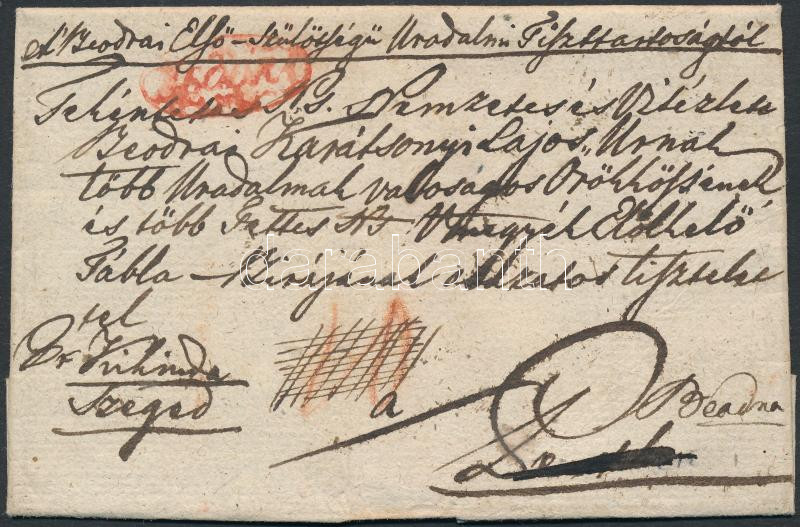 A' Beodrai Első-Szülöttségü Uradalmi Tiszttartoságtól
Tekéntetes N. Nemzetes és Vitézlete
Beodrai Karátsonyi Lajos Urnak
több Uradalmak valoságos Örökössének
és több Tettes Ns Vmegyék Elölhelö
Tábla-Birájának alázatos tisztelet
tel
Dr Kikinda
Szeged
a
Beodra
darabanth